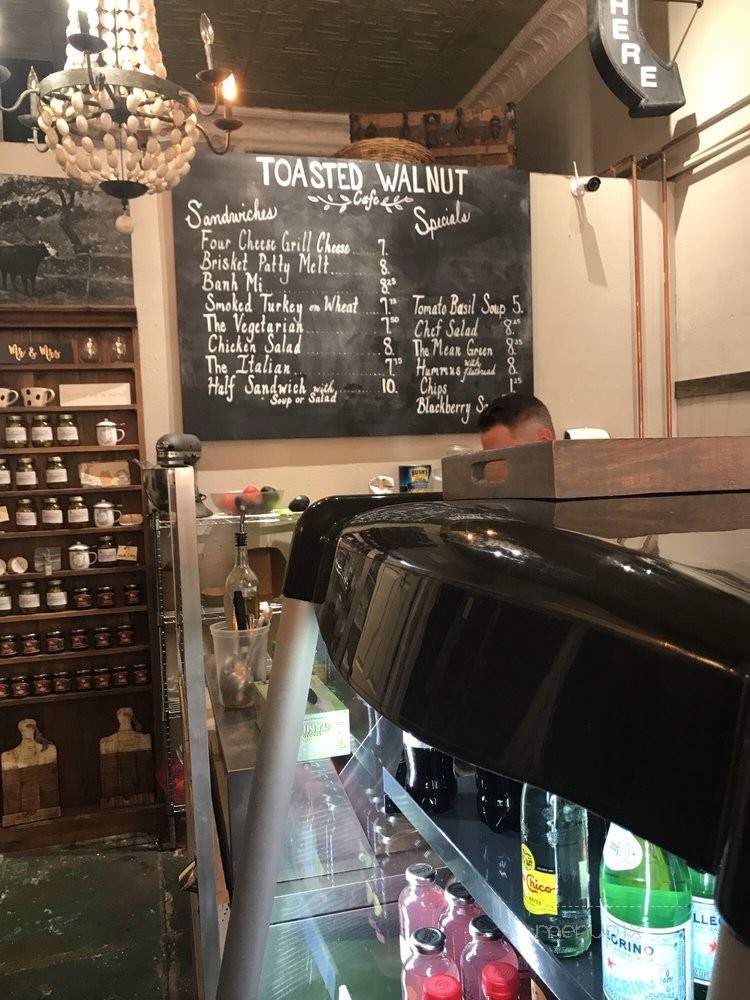 HERE
TOASTED WALNUT
Cafe
Sandwiches
Four Cheese Grill Cheese 7.
Brisket Patty Melt 8.
Banh Mi 8.25
Smoked Turkey on Wheat 7.75
The Vegetarian 7.50
Chicken Salad 8.
The Italian 7.75
Half Sandwich with Soup or Salad 10.
Specials
Tomato Basil Soup 5.
Chef Salad 8.25
The Mean Green 8.25
Hummus with flatbread 8.
Chips 1.25
Blackberry
Mr & Mrs
BUSH'S
VINYL
Chico
PELLEGRINO